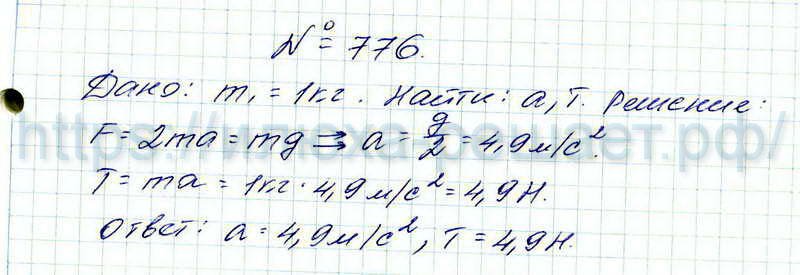 № 776.
Дано: m₁ = 1кг. Найти: a, T. Решение:
F = 2ma = mg ⇒ a = g/2 = 4,9 м/с².
T = ma = 1кг · 4,9 м/с² = 4,9 Н.
Ответ: a = 4,9 м/с², T = 4,9 Н.